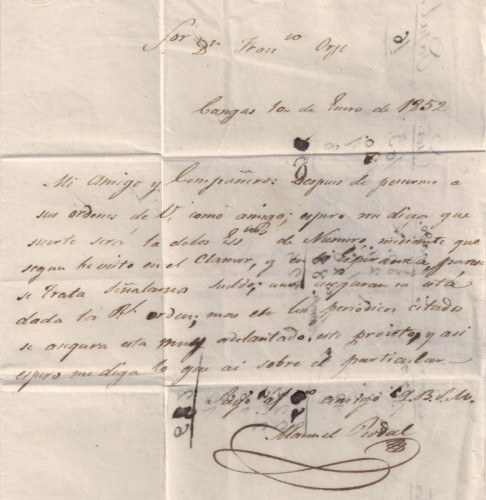 Sor Dn Franco Orje
Cangas 10 de Enero de 1852
Mi Amigo y Compañero: Despues de ponerme á
sus ordenes de V. como amigo; espero me diga que
suerte será la de los Essnos de Numero, mediante que
segun he visto en el Clamor, y en la Esperanza
se trata señalarnos sueldo; unos aseguran está
dada la Rl. orden; mas en los periodicos citados
se asegura esta muy adelantado este proieto, y asi
espero me diga lo que ai sobre el particular.
amigo Q.B.S.M.
Manuel Pedal